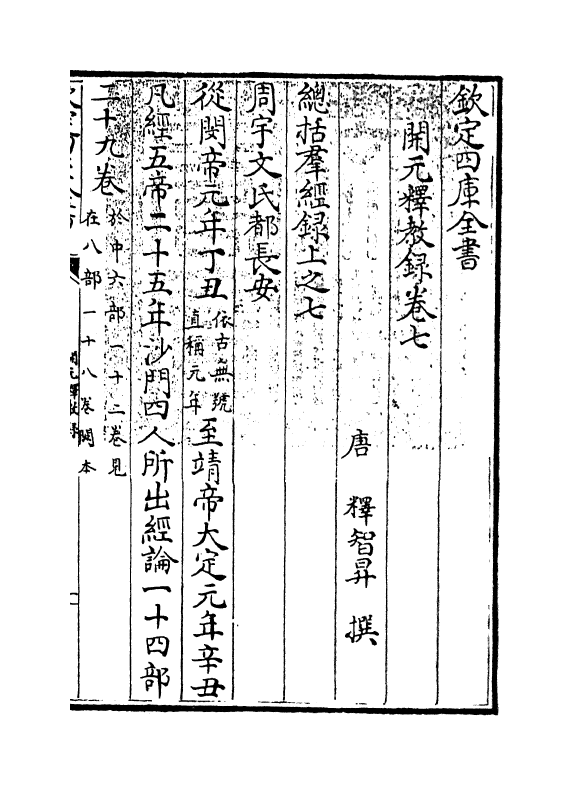 欽定四庫全書
開元釋教錄卷七
唐 釋智昇 撰
總括羣經録上之七
周宇文氏都長安
從閔帝元年丁丑依古無號直稱元年至靖帝大定元年辛丑
凡經五帝二十五年沙門四人所出經論一十四部
二十九卷於中六部一十二卷見在八部一十八卷闕本